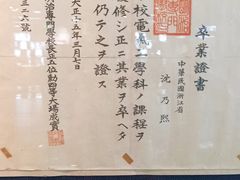 卒業證書
中華民國浙江省
沈乃熙
校電氣工學科ノ課程ヲ
修シ正ニ其業ヲ卒ヘタ
仍テ之ヲ證ス
大正十五年三月七日
治專門學校長正五位勳四等大場成實
三二六號